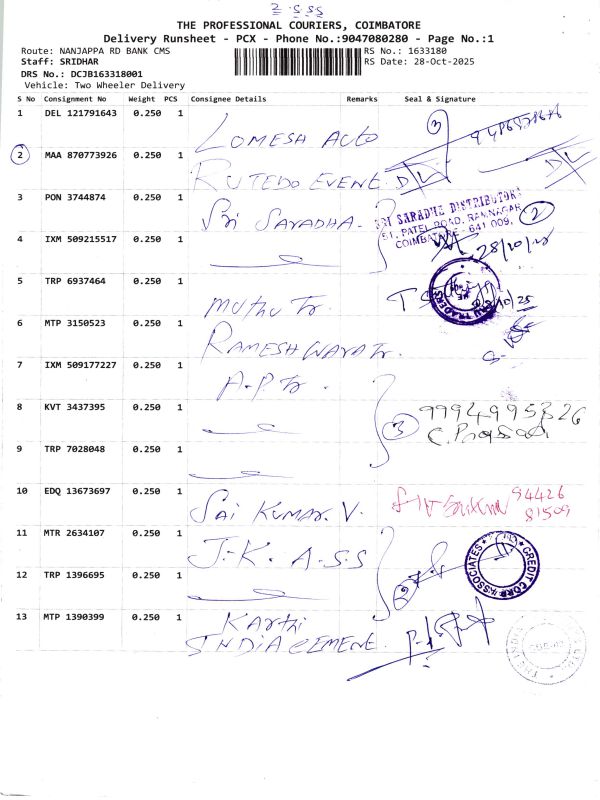 2.S.S.S
THE PROFESSIONAL COURIERS, COIMBATORE
Delivery Runsheet - PCX - Phone No.:9047080280 - Page No.:1
Route: NANJAPPA RD BANK CMS
RS No.: 1633180
Staff: SRIDHAR
RS Date: 28-Oct-2025
DRS No.: DCJB163318001
Vehicle: Two Wheeler Delivery
S No Consignment No Weight PCS Consignee Details Remarks Seal & Signature
1 DEL 121791643 0.250 1 LOMESH AUTO 3
2 MAA 870773926 0.250 1 RUTEDO EVENT. D/L D/L
3 PON 3744874 0.250 1 Sri SARADHA. 2
SRI SARADHE DISTRIBUTORS
51, PATEL ROAD, RAMNAGAR
COIMBATORE - 641 009.
4 IXM 509215517 0.250 1 28/10/25
5 TRP 6937464 0.250 1 Muthu Tr.
6 MTP 3150523 0.250 1 RAMESHWARA Tr.
7 IXM 509177227 0.250 1 A.P Tr.
8 KVT 3437395 0.250 1 3 9994995326
C. Prasad
9 TRP 7028048 0.250 1
10 EDQ 13673697 0.250 1 SAI KUMAR. V. 94426
81509
11 MTR 2634107 0.250 1 J.K. A.S.S
CREDIT CORP ASSOCIATES
12 TRP 1396695 0.250 1 2
13 MTP 1390399 0.250 1 KARTHI
INDIA CEMENT.